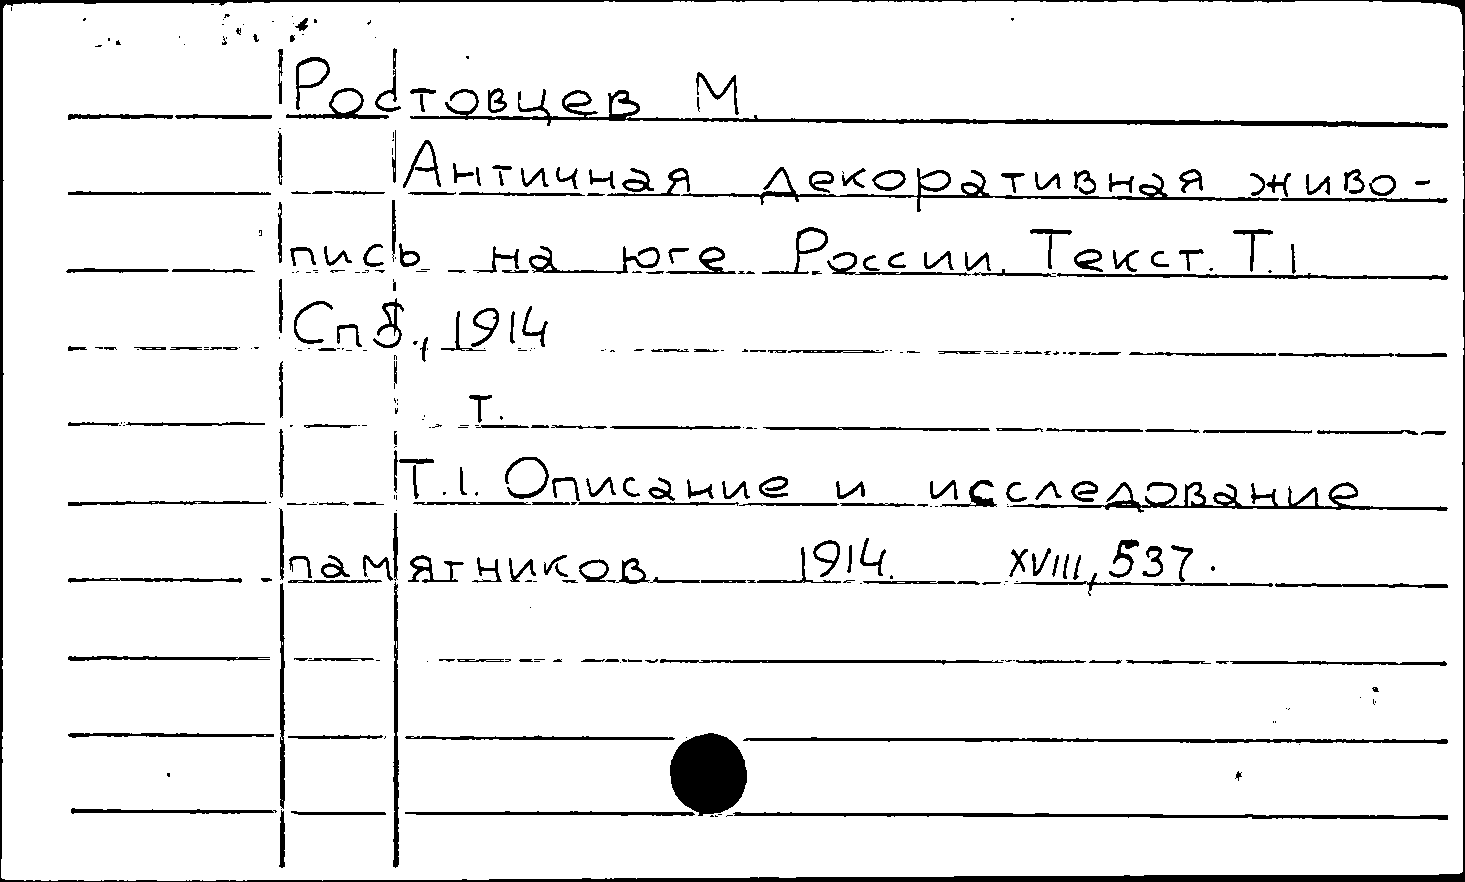 Ростовцев М.
Античная декоративная живо-
пись на юге России. Текст. Т.1
Спб., 1914
т.
Т.1. Описание и исследование
памятников. 1914. XVIII, 537.